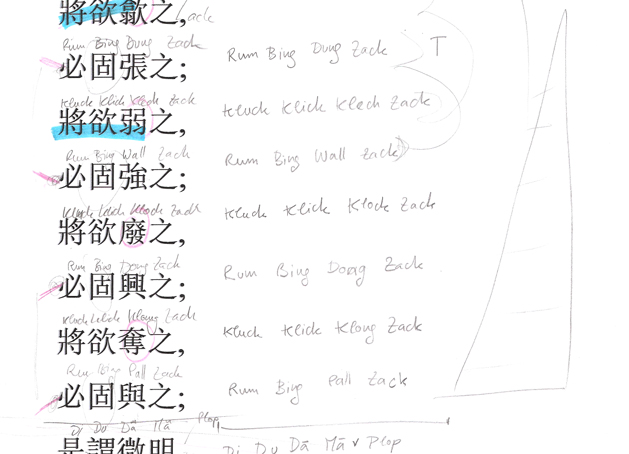 將欲歙之,
Zack
Rum Bing Dong Zack
必固張之; Rum Bing Dong Zack T
Kluck Klick Klech Zack
將欲弱之, Kluck Klick Klech Zack
Rum Bing Wall Zack
必固強之; Rum Bing Wall Zack
Klock Zack
將欲廢之, Kluck Klick Klock Zack
Rum Bing Dong Zack
必固興之; Rum Bing Dong Zack
Klong Zack
將欲奪之, Kluck Klick Klong Zack
Rum Bing Pall Zack
必固與之; Rum Bing Pall Zack
Di Du Dā Mā Plop
是謂微明 Di Du Dā Mā Plop